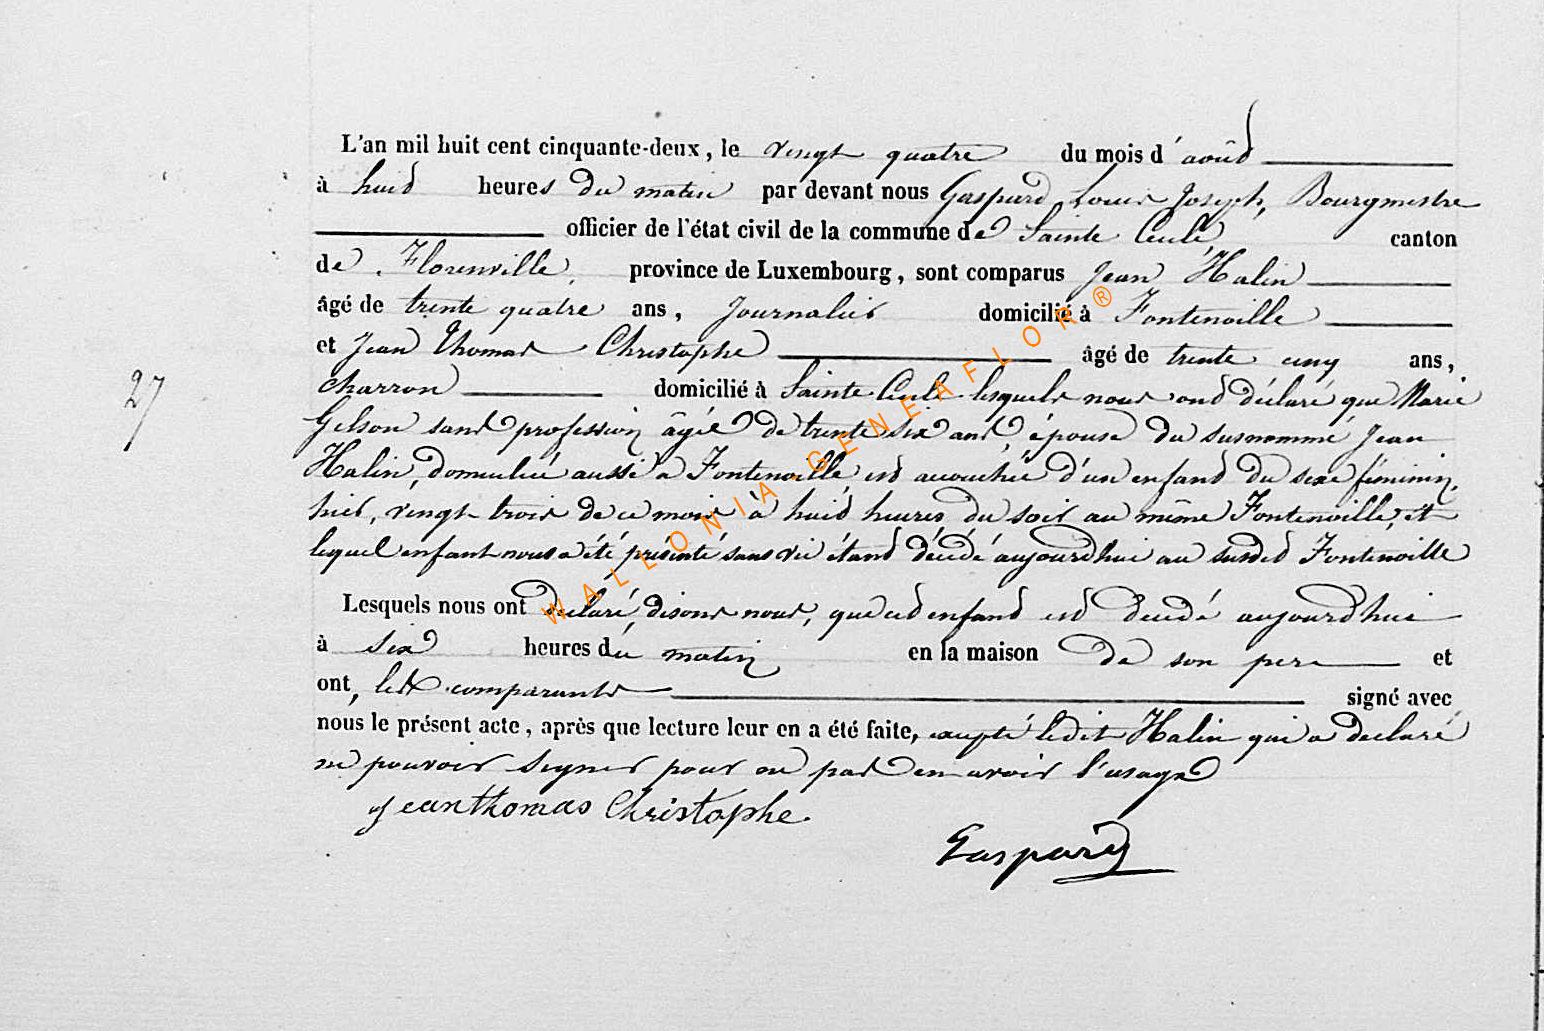 L'an mil huit cent cinquante-deux, le vingt quatre du mois d'août
à huit heures du matin par devant nous Gaspard Louis Joseph, Bourgmestre
officier de l'état civil de la commune de Sainte Cecile canton
de Florenville, province de Luxembourg, sont comparus Jean Halin
âgé de trente quatre ans, Journalier domicilié à Fontenoille
et Jean Thomas Christophe âgé de trente cinq ans,
charron domicilié à Sainte Cecile lesquels nous ont déclaré que Marie
27
Gelson sans profession âgée de trente six ans, épouse du susnommé Jean
Halin, domiciliée aussi à Fontenoille est accouchée d'un enfant du sexe féminin,
hier, vingt trois de ce mois à huit heures du soir au même Fontenoille, et
lequel enfant nous a été présenté sans vie étant décédé aujourd'hui au susdit Fontenoille
Lesquels nous ont déclaré, disons nous, que cet enfant est decedé aujourd'hui
à six heures du matin en la maison de son pere et
ont, les comparants signé avec
nous le présent acte, après que lecture leur en a été faite, excepté ledit Halin qui a declaré
ne pouvoir signer pour ne pas en avoir l'usage
Jean thomas Christophe.
Gaspard
WALLONIA-GENEAFLOR®